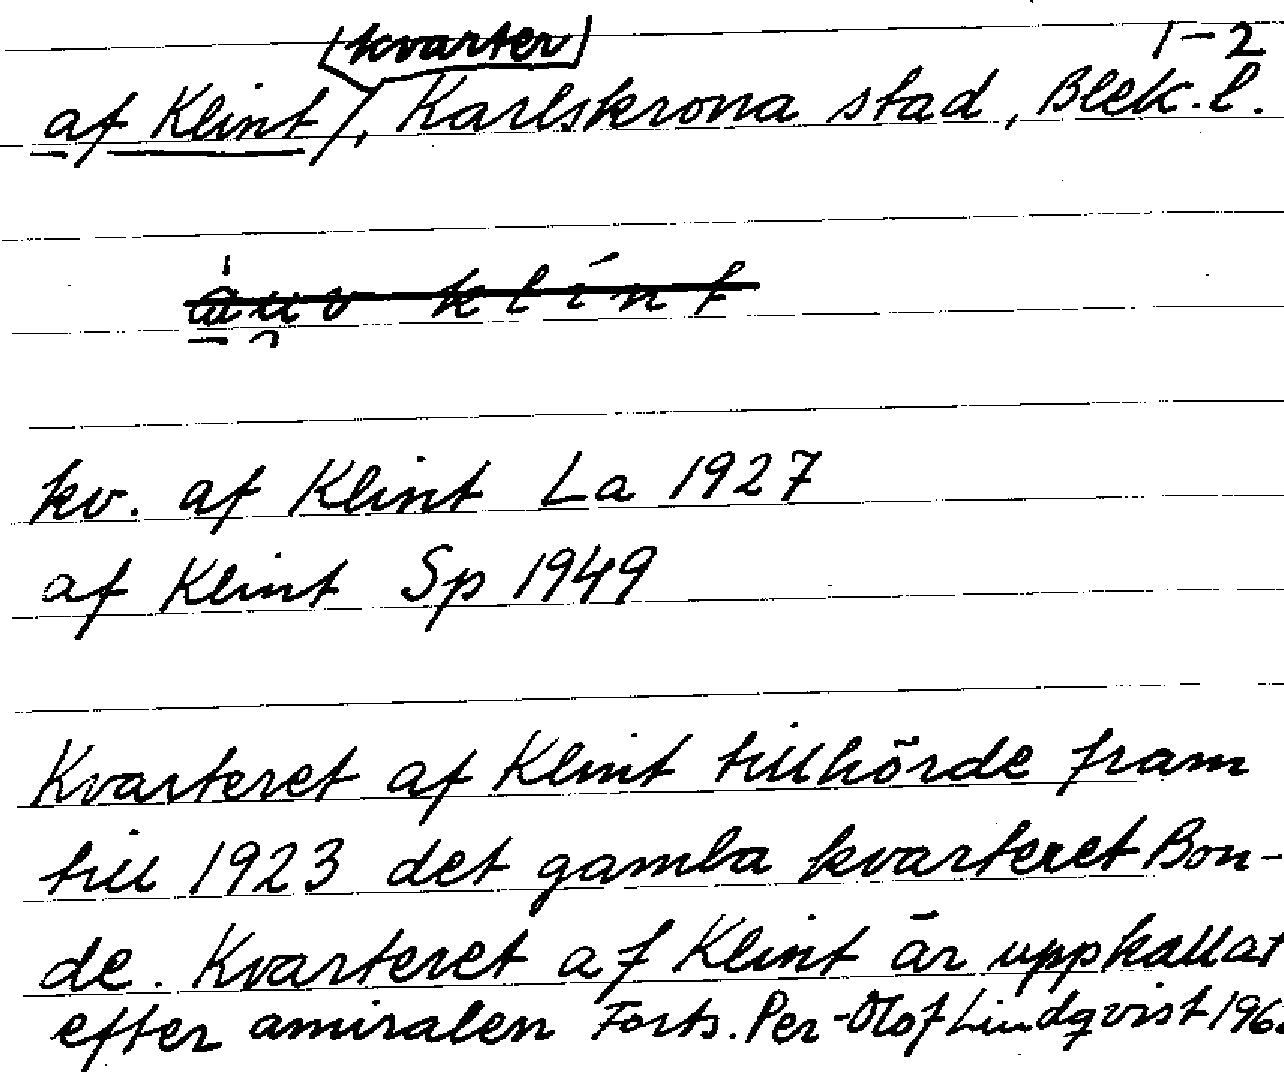 (kvarter) 1-2
af Klint/, Karlskrona stad, Blek. l.
kv. af Klint La 1927
af Klint Sp 1949
Kvarteret af Klint tillhörde fram
till 1923 det gamla kvarteret Bon-
de. Kvarteret af Klint är uppkallat
efter amiralen Forts. Per-Olof Lindqvist